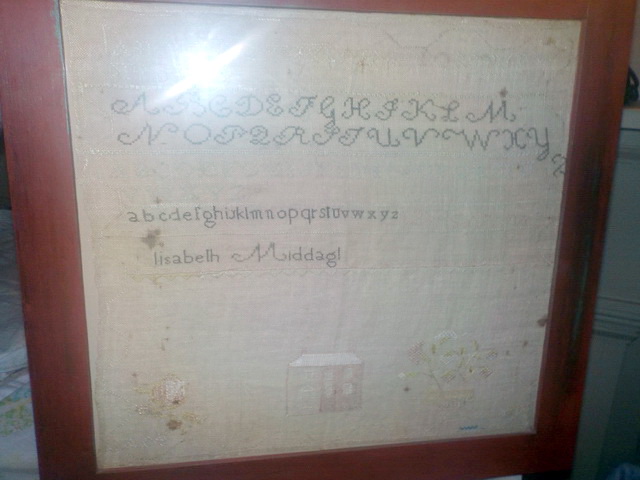 A B C D E F G H I K L M
N O P Q R S T U V W X Y
Z
a b c d e f g h i j k l m n o p q r s t u v w x y z
lisabeth Middagl